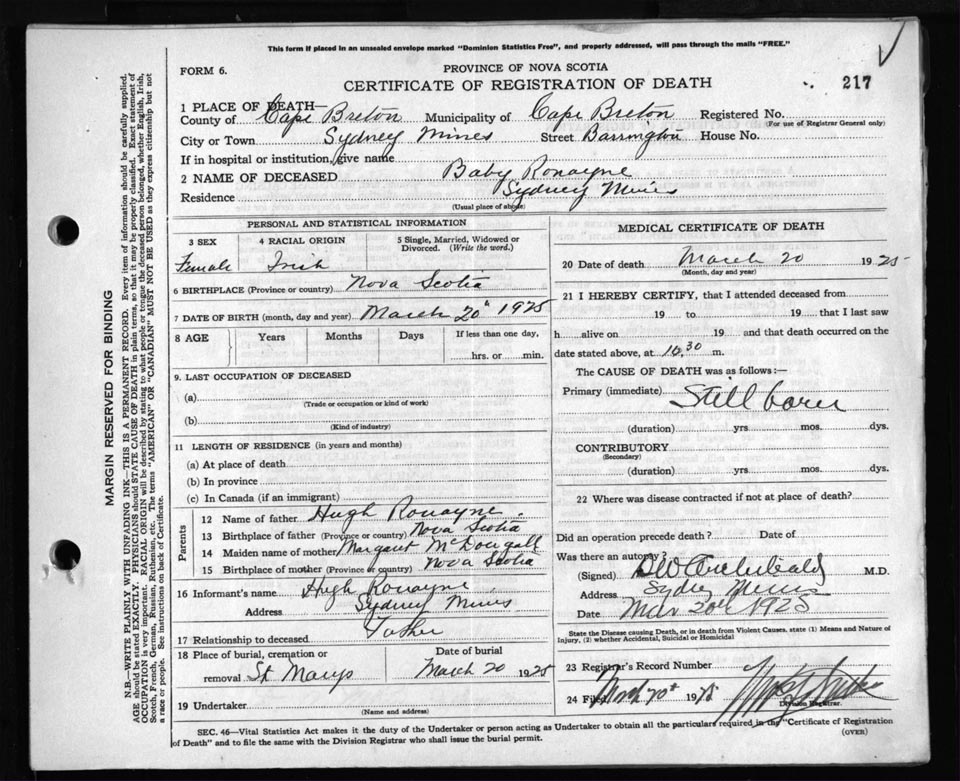 This form if placed in an unsealed envelope marked "Dominion Statistics Free", and properly addressed, will pass through the mails "FREE."
FORM 6.
PROVINCE OF NOVA SCOTIA
CERTIFICATE OF REGISTRATION OF DEATH
217
1 PLACE OF DEATH—
County of Cape Breton Municipality of Cape Breton Registered No.
(For use of Registrar General only)
City or Town Sydney Mines Street Barrington House No.
If in hospital or institution, give name
2 NAME OF DECEASED Baby Ronayne
Residence Sydney Mines
(Usual place of abode)
PERSONAL AND STATISTICAL INFORMATION
3 SEX 4 RACIAL ORIGIN 5 Single, Married, Widowed or Divorced. (Write the word.)
Female Irish
6 BIRTHPLACE (Province or country) Nova Scotia
7 DATE OF BIRTH (month, day and year) March 20th 1925
8 AGE Years Months Days If less than one day,
hrs. or min.
9. LAST OCCUPATION OF DECEASED
(a)
(Trade or occupation or kind of work)
(b)
(Kind of industry)
11 LENGTH OF RESIDENCE (in years and months)
(a) At place of death
(b) In province
(c) In Canada (if an immigrant)
Parents
12 Name of father Hugh Ronayne
13 Birthplace of father (Province or country) Nova Scotia
14 Maiden name of mother Margaret McDougall
15 Birthplace of mother (Province or country) Nova Scotia
16 Informant's name Hugh Ronayne
Address Sydney Mines
17 Relationship to deceased Father
18 Place of burial, cremation or Date of burial
removal St Marys March 20 1925
19 Undertaker
(Name and address)
MEDICAL CERTIFICATE OF DEATH
20 Date of death March 20 1925
(Month, day and year)
21 I HEREBY CERTIFY, that I attended deceased from
19 to 19 that I last saw
h alive on 19 and that death occurred on
date stated above, at 10.30 m.
The CAUSE OF DEATH was as follows:—
Primary (immediate) Still born
(duration) yrs. mos. dys.
CONTRIBUTORY
(Secondary)
(duration) yrs. mos. dys.
22 Where was disease contracted if not at place of death?
Did an operation precede death? Date of
Was there an autopsy?
(Signed) Archibald M.D.
Address Sydney Mines
Date Mar 20th 1925
State the Disease causing Death, or in death from Violent Causes, state (1) Means and Nature of
Injury, (2) whether Accidental, Suicidal or Homicidal
23 Registrar's Record Number
24 Filed 20th 1925
Division Registrar.
SEC. 46—Vital Statistics Act makes it the duty of the Undertaker or person acting as Undertaker to obtain all the particulars required in the "Certificate of Registration
of Death" and to file the same with the Division Registrar who shall issue the burial permit.
(OVER)
MARGIN RESERVED FOR BINDING
N.B.—WRITE PLAINLY WITH UNFADING INK—THIS IS A PERMANENT RECORD. Every item of information should be carefully supplied.
AGE should be stated EXACTLY. PHYSICIANS should STATE CAUSE OF DEATH in plain terms, so that it may be properly classified. Exact statement of
OCCUPATION is very important. RACIAL ORIGIN will be described by stating to what people or tongue the deceased person belonged, whether English, Irish,
Scotch, French, German, Russian, Ruthenian, etc. The terms "AMERICAN" or "CANADIAN" MUST NOT BE USED as they express citizenship but not
a race or people. See instructions on back of Certificate.